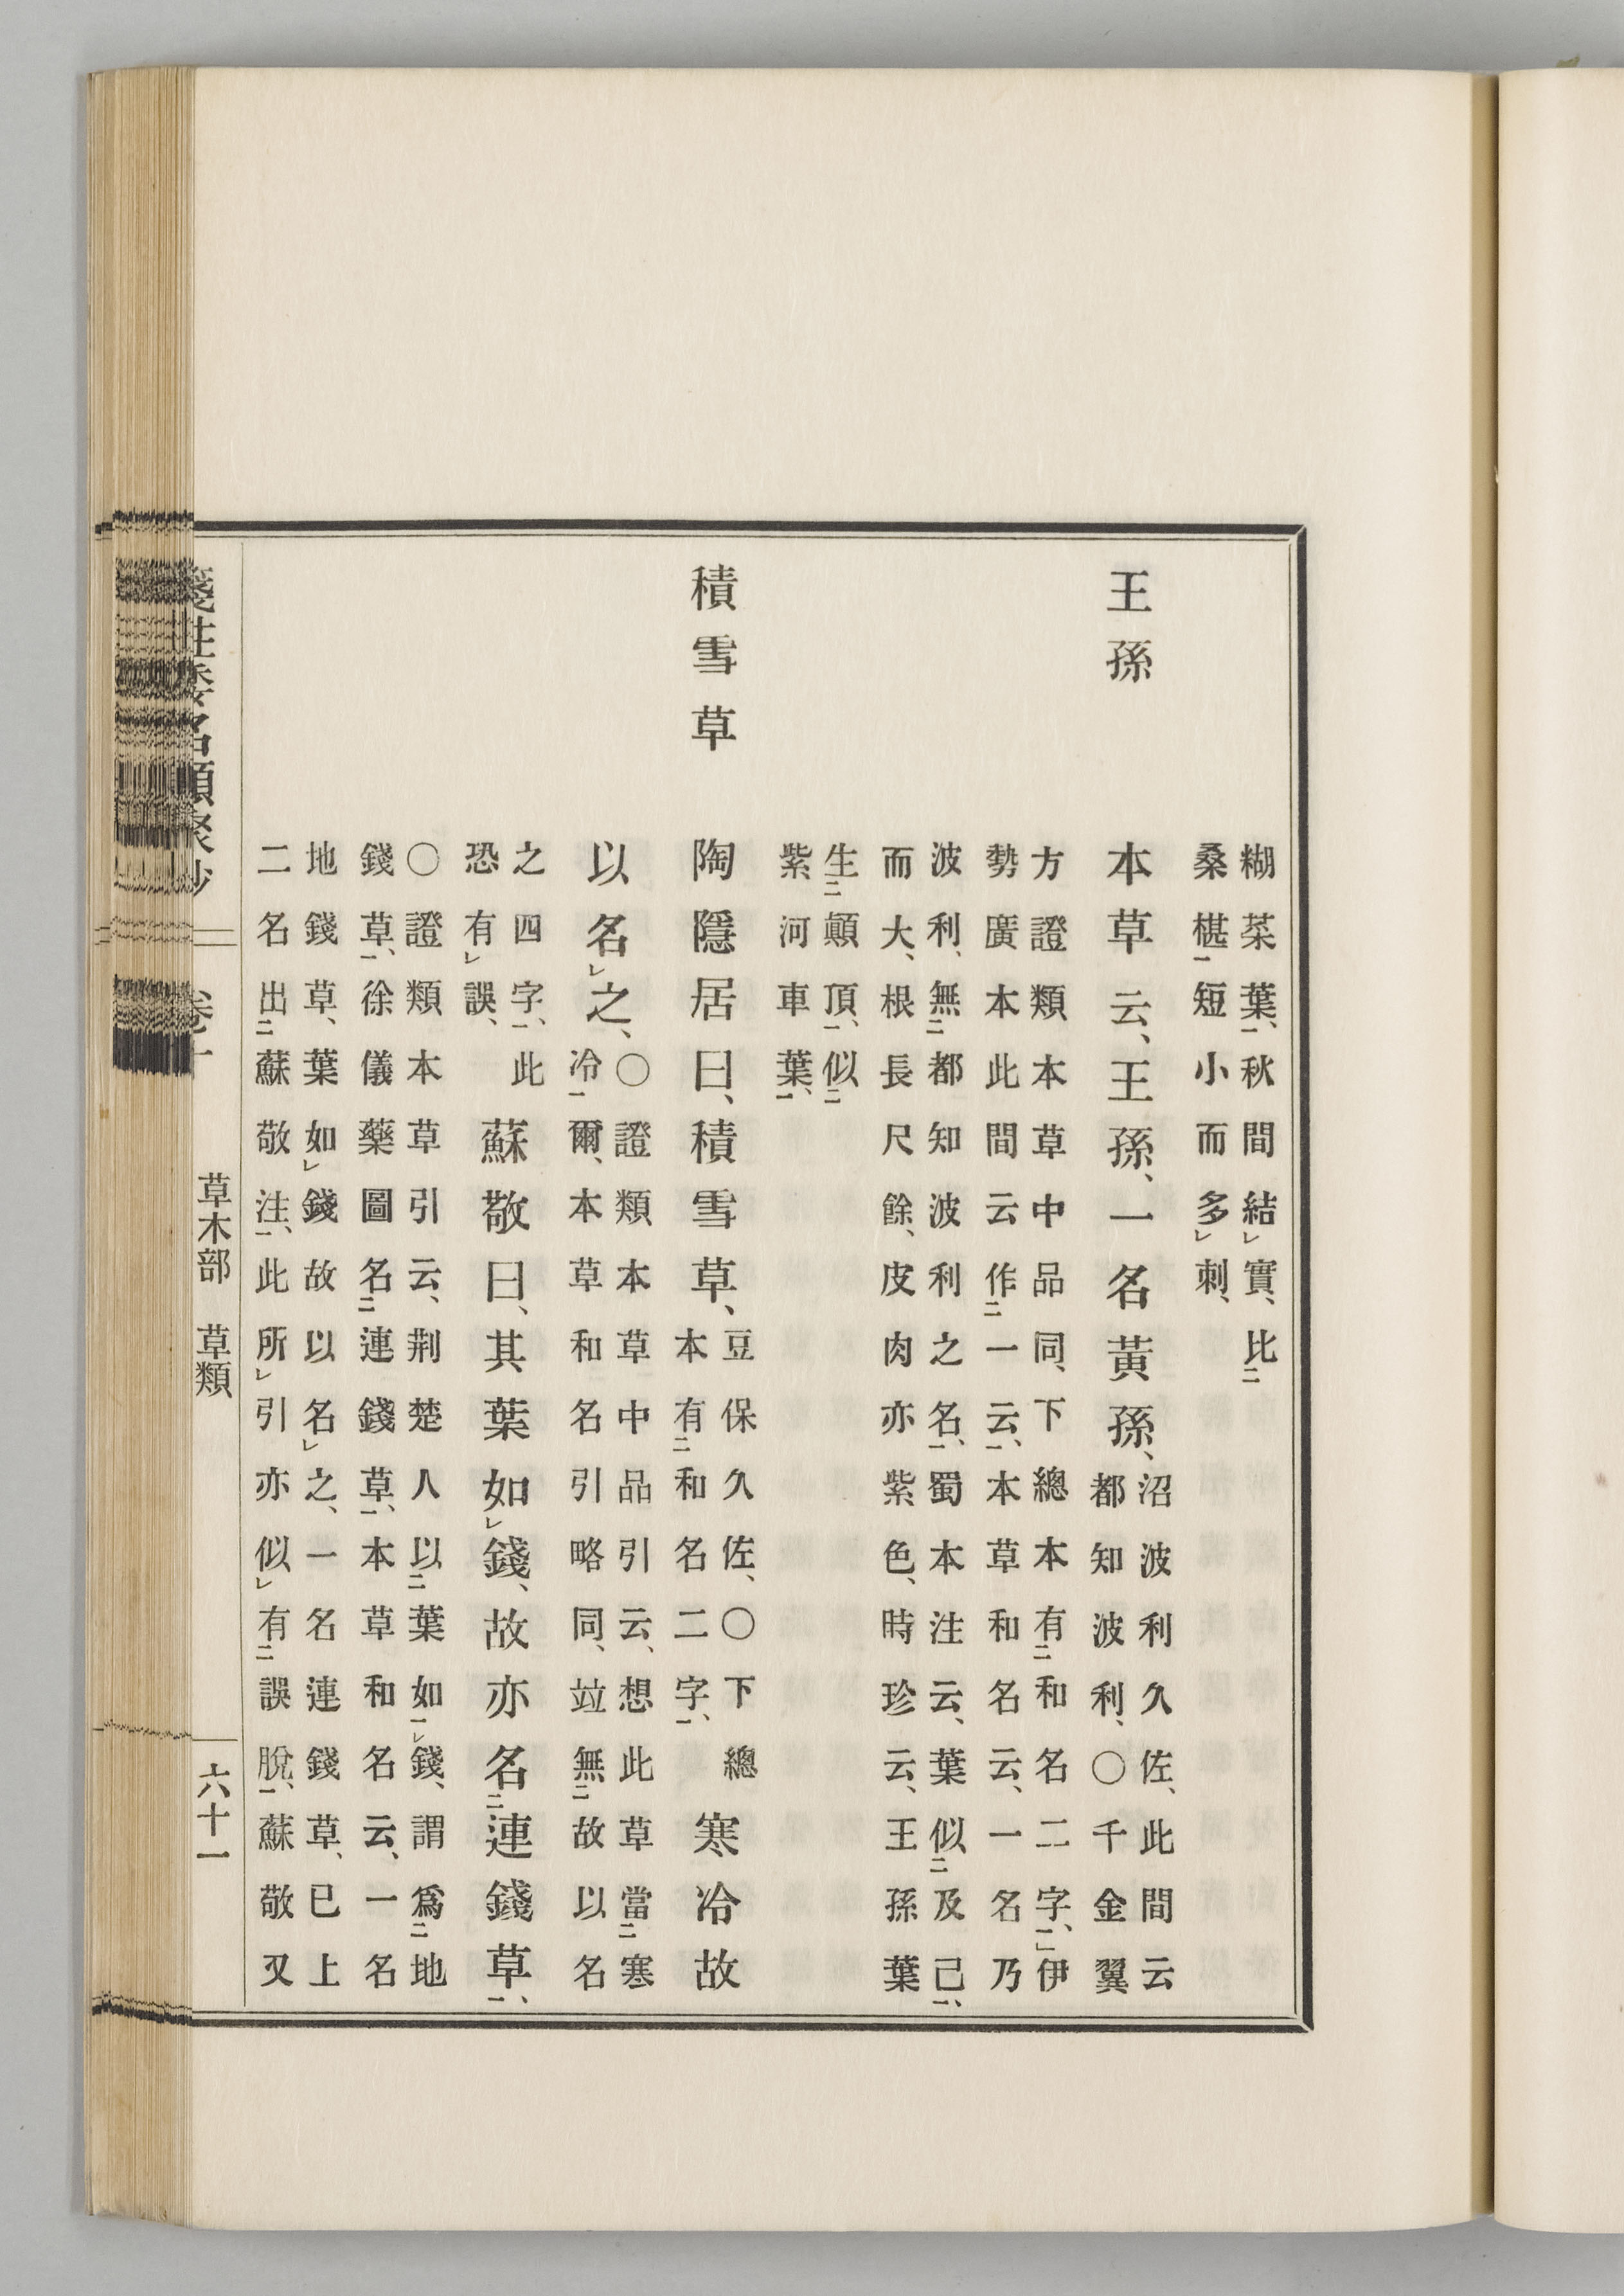 糊菜葉㆒、秋間結㆑實、比㆓
桑椹㆒短小而多㆑刺、
王孫
本草云、王孫、一名黃孫、
沼波利久佐、此間云
都知波利、〇千金翼
方證類本草中品同、下總本有㆓和名二字㆒、伊
勢廣本此間云作㆓一云㆒、本草和名云、一名乃
波利、無㆓都知波利之名㆒、蜀本注云、葉似㆓及己㆒、
而大、根長尺餘、皮肉亦紫色、時珍云、王孫葉
生㆓顚頂㆒、似㆓
紫河車葉㆒、
積雪草
陶隱居曰、積雪草、
豆保久佐、〇下總
本有㆓和名二字㆒、
寒冷故
以名㆑之、
〇證類本草中品引云、想此草當㆓寒
冷㆒爾、本草和名引略同、竝無㆓故以名
之四字㆒、此
恐有㆑誤、
蘇敬曰、其葉如㆑錢、故亦名㆓連錢草㆒、
〇證類本草引云、荆楚人以㆓葉如㆒㆑錢、謂爲㆓地
錢草㆒、徐儀藥圖名㆓連錢草㆒、本草和名云、一名
地錢草、葉如㆑錢故以名㆑之、一名連錢草、已上
二名出㆓蘇敬注㆒、此所㆑引亦似㆑有㆓誤脫㆒、蘇敬又
名類聚抄
卷十
草木部 草類
六十一